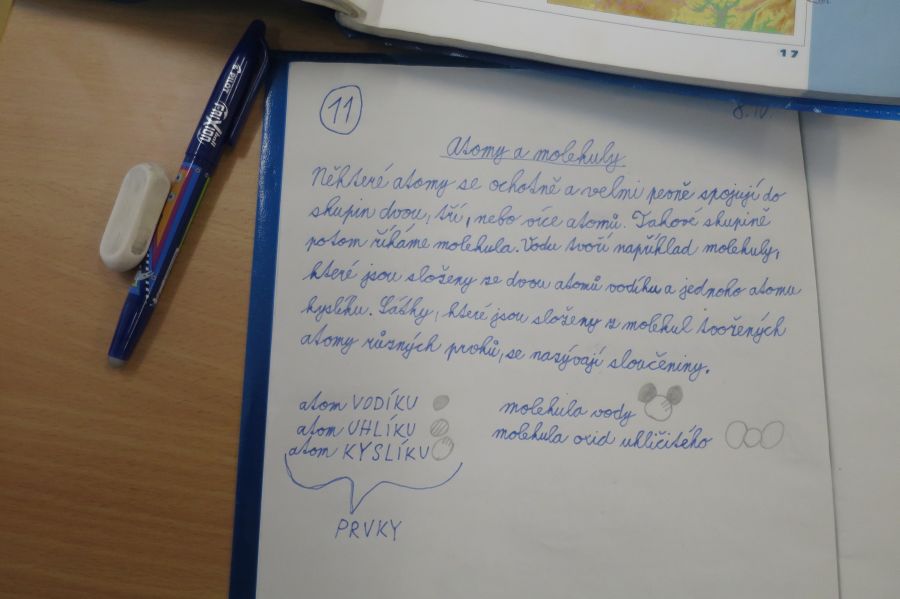 17
PILOT
FriXion
11
8.10.
Atomy a molekuly
Některé atomy se ochotně a velmi pevně spojují do
skupin dvou, tří, nebo více atomů. Takové skupině
potom říkáme molekula. Vodu tvoří například molekuly,
které jsou složeny ze dvou atomů vodíku a jednoho atomu
kyslíku. Látky, které jsou složeny z molekul tvořených
atomy různých prvků, se nazývají sloučeniny.
atom VODÍKU
molekula vody
atom UHLÍKU
molekula oxid uhličitého
atom KYSLÍKU
PRVKY